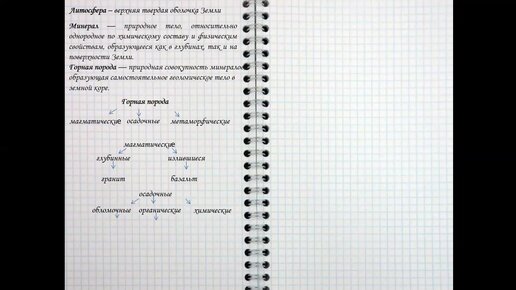 Литосфера – верхняя твердая оболочка Земли
Минерал — природное тело, относительно
однородное по химическому составу и физическим
свойствам, образующееся как в глубинах, так и на
поверхности Земли.
Горная порода — природная совокупность минералов,
образующая самостоятельное геологическое тело в
земной коре.
Горная порода
магматические осадочные метаморфические
магматические
глубинные излившиеся
гранит базальт
осадочные
обломочные органические химические